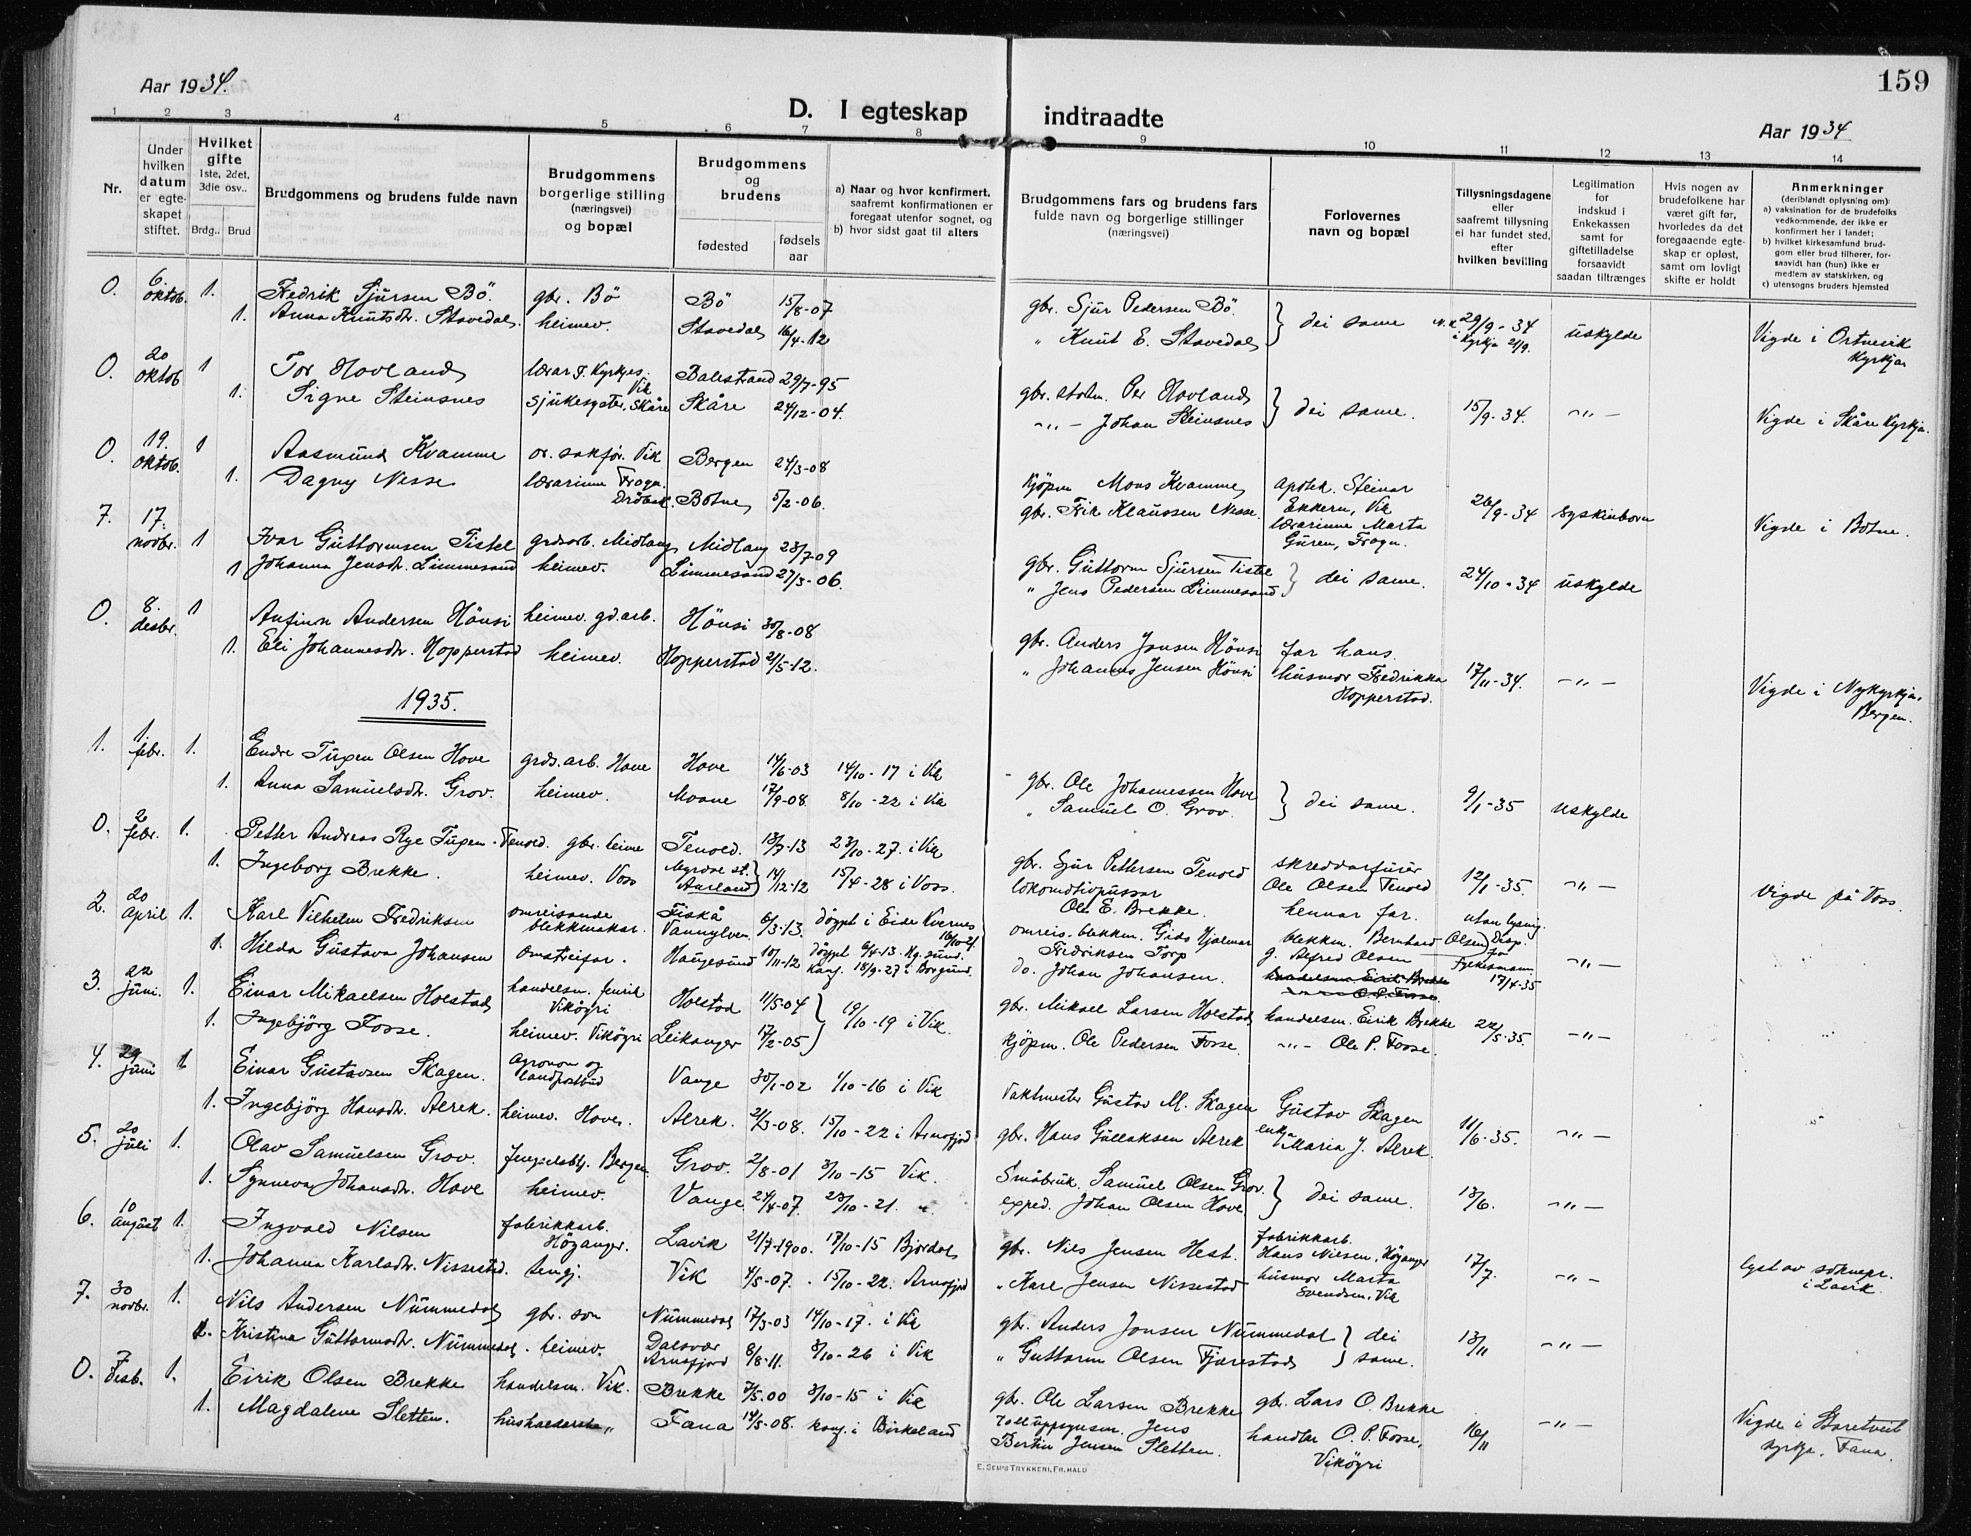 159
Aar 1934.
D. I egteskap indtraadte
Aar 1934
1 2 3 4 5 6 7 8 9 10 11 12 13 14
Nr.
Under
hvilken
datum
er egte-
skapet
stiftet.
Hvilket
gifte
1ste, 2det,
3die osv..
Brdg.. Brud
Brudgommens og brudens fulde navn
Brudgommens
borgerlige stilling
(næringsvei)
og bopæl
Brudgommens
og
brudens
fødested
fødsels
aar
a) Naar og hvor konfirmert,
saafremt konfirmationen er
foregaat utenfor sognet, og
b) hvor sidst gaat til alters
Brudgommens fars og brudens fars
fulde navn og borgerlige stillinger
(næringsvei)
Forlovernes
navn og bopæl
Tillysningsdagene
eller
saafremt tillysning
ei har fundet sted,
efter
hvilken bevilling
Legitimation
for
indskud i
Enkekassen
samt for
giftetilladelse
forsaavidt
saadan tiltrænges
Hvis nogen av
brudefolkene har
været gift før,
hvorledes da det
foregaaende egte-
skap er opløst,
samt om lovligt
skifte er holdt
Anmerkninger
(deriblandt oplysning om):
a) vaksination for de brudefolks
vedkommende, der ikke er
konfirmert her i landet;
b) hvilket kirkesamfund brud-
gom eller brud tilhører, for-
saavidt han (hun) ikke er
medlem av statskirken, og
c) utensogns bruders hjemsted
0. 6. oktob. 1. Fredrik Sjursen Bö. gbr. Bö Bö 15/8-07 gbr. Sjur Pedersen Bö. } dei same 29/9-34 uskylde Vigde i Ortnevik kyrkja
1. Anna Knutsdtr. Stavedal. heimev. Stavedal 16/4-12 " Knut E. Stavedal i kyrkja
0. 20 oktob 1 Tor Hovland lærar F. Kyrkjes. Vik Balestrand 29/7-95 gbr. Per Hovland } dei same. 15/9-34. -"- Vigde i Skåre kyrkja.
1. Signe Steinsnes sjukesyster, Skåre Skåre 24/12-04. -"- Johan Steinsnes
0. 19. oktob. 1 Aasmund Kvamme or. sakför. Vik Bergen 24/3-08 Kjöpm Mons Kvamme apotek. Steinar Ekkern, Vik 26/9-34 syskinborn Vigde i Botne.
1. Dagny Nesse lærarinne Frogn. Dröbak. Botne 5/2-06. gbr. Erik Klaussen Nesse. lærarinne Marta Guren, Frogn.
7. 17. novbr. 1 Ivar Guttormsen Tistel grdsarb. Midlang Midlang 23/7-09 gbr. Guttorm Sjursen Tistel } dei same. 24/10-34 uskylde
1 Johanna Jensdtr. Limmesand heimev. Limmesand 27/3-06. " Jens Pedersen Limmesand
0. 8. desbr. 1 Anfinn Andersen Hönsi heimev. gd.arb. Hönsi 30/8-08 gbr. Anders Jonsen Hönsi far hans. 17/11-34. -"- Vigde i Nykyrkja, Bergen.
1. Eli Johannesdtr. Hopperstad heimev. Hopperstad 21/5-12. " Johannes Jensen Hönsi husmor Fredrikka Hopperstad.
1935.
1. 1. febr. 1. Endre Tugen Olsen Hove grds.arb. Hove Hove 14/6-03 14/10-17 i Vik gbr. Ole Johannessen Hove } dei same. 9/1-35 uskylde
1. Anna Samuelsdtr. Grov. heimev. Moane 17/9-08. 8/10-22 i Vik " Samuel O. Grov.
0. 2 febr. 1. Petter Andreas Rye Tugen-Tenold. gbr. heime Tenold. 13/7-13 23/10-27. i Vik gbr. Sjur Pettersen Tenold skreddarfurer Ole Olsen Tenold 12/1-35. -"- Vigde på Voss.
1. Ingeborg Brekke. heimev. Voss Myrdal st. Aurland 14/12-12 15/4-28 i Voss. lokomotivpussar Ole E. Brekke. hennar far.
2. 20 April 1. Karl Vilhelm Fredriksen omreisande blekkmakar. Fiskå Vannylven 6/3-13. Döypt i Eide Kvernes omreis. blekkm. Gids Hjalmar Fredriksen Torp blekkm. Bernhard Olsen utan lysing. Disp. Fylkesmann. 17/4-35 -"-
1. Hilda Gustava Johansen omstreifar. Haugesund 10/11-12 Döypt 9/4-13. Hg.sund. Konf. 18/9-27 i Borgund. do. Johan Johansen. g. Alfred Olsen
3. 22 juni. 1. Einar Mikaelsen Holstad handelsm. Vikögri Holstad 11/5-04 } 19/10-19 i Vik. gbr. Mikael Larsen Holstad handelsm. Eirik Brekke 22/5-35. -"-
1. Ingebjörg Fosse. heimev. Vikögri Leikanger 17/2-05 Kjöpm. Ole Pedersen Fosse. -"- Ole P. Fosse.
4. 29 juni 1 Einar Gustavsen Skagen. agronom og landpostbud Vange 30/1-02 1/10-16 i Vik Vaktmester Gustav M. Skagen Gustav Skagen 11/6-35. -"-
1. Ingebjörg Hansdtr. Alrek. heimev. Hove. Alrek. 21/3-08. 15/10-22 i Arnafjord gbr. Hans Gullaksen Alrek enka Maria J. Alrek.
5. 20 juli 1. Olav Samuelsen Grov. fengselsbtj. Bergen Grov. 2/8-01 3/10-15 Vik. Småbruk. Samuel Olsen Grov. } dei same. 13/6. -"-
1. Synneva Johansdtr. Hove heimev. Vange 24/4-07. 23/10-21. " exped. Johan Olsen Hove
6. 10 august 1. Ingvald Nilsen fabrikkarb. Höyanger. Lavik 21/7-1900. 17/10-15 Bjordal gbr. Nils Jensen Hest. fabrikkarb. Hans Nilsen, Höyanger 17/7. -"- lyst av soknepr. i Lavik.
1. Johanna Karlsdtr. Nissestad. tenj. Vik 4/5-07. 15/10-22. Arnafjord " Karl Jensen Nissestad husmor Marta Svendsen, Vik
7. 30 novbr. 1. Nils Andersen Nummedal gbr. son Nummedal 17/3-03 14/10-17. i Vik gbr. Anders Jonsen Nummedal } dei same. 13/11 -"-
1. Kristina Guttormsdtr. Nummedal. heimev. Dalsvær Arnafjord 8/8-11. 3/10-26 i Vik " Guttorm Olsen Fjærestad
0. 7 desb. 1. Eirik Olsen Brekke handelsm. Vik. Brekke 7/5.00 3/10-15 i Vik gbr. Ole Larsen Brekke gbr. Lars O. Brekke 16/11 -"- Vigde i Storetveit kyrkja, Fana.
1. Magdalene Sletten. husholderske " Fana 14/5-08. konf. i Birkeland Tolluppsynsm. Jens Bertin Jensen Sletten. handlar O. P. Fosse, Vikögri
E. SEM'S TRYKKERI, FR.HALD